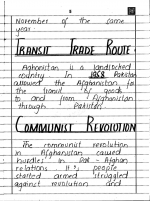 November of the same
year.
TRANSIT TRADE ROUTE
Afghanistan is a landlocked
country. In 1958 Pakistan
allowed the Afghanistan for
the transit of goods
to and from Afghanistan
through Pakistan.
COMMUNIST REVOLUTION
The communist revolution
in Afghanistan caused
hurdles in Pak - Afghan
relations. It's people
started armed struggled
against revolution and